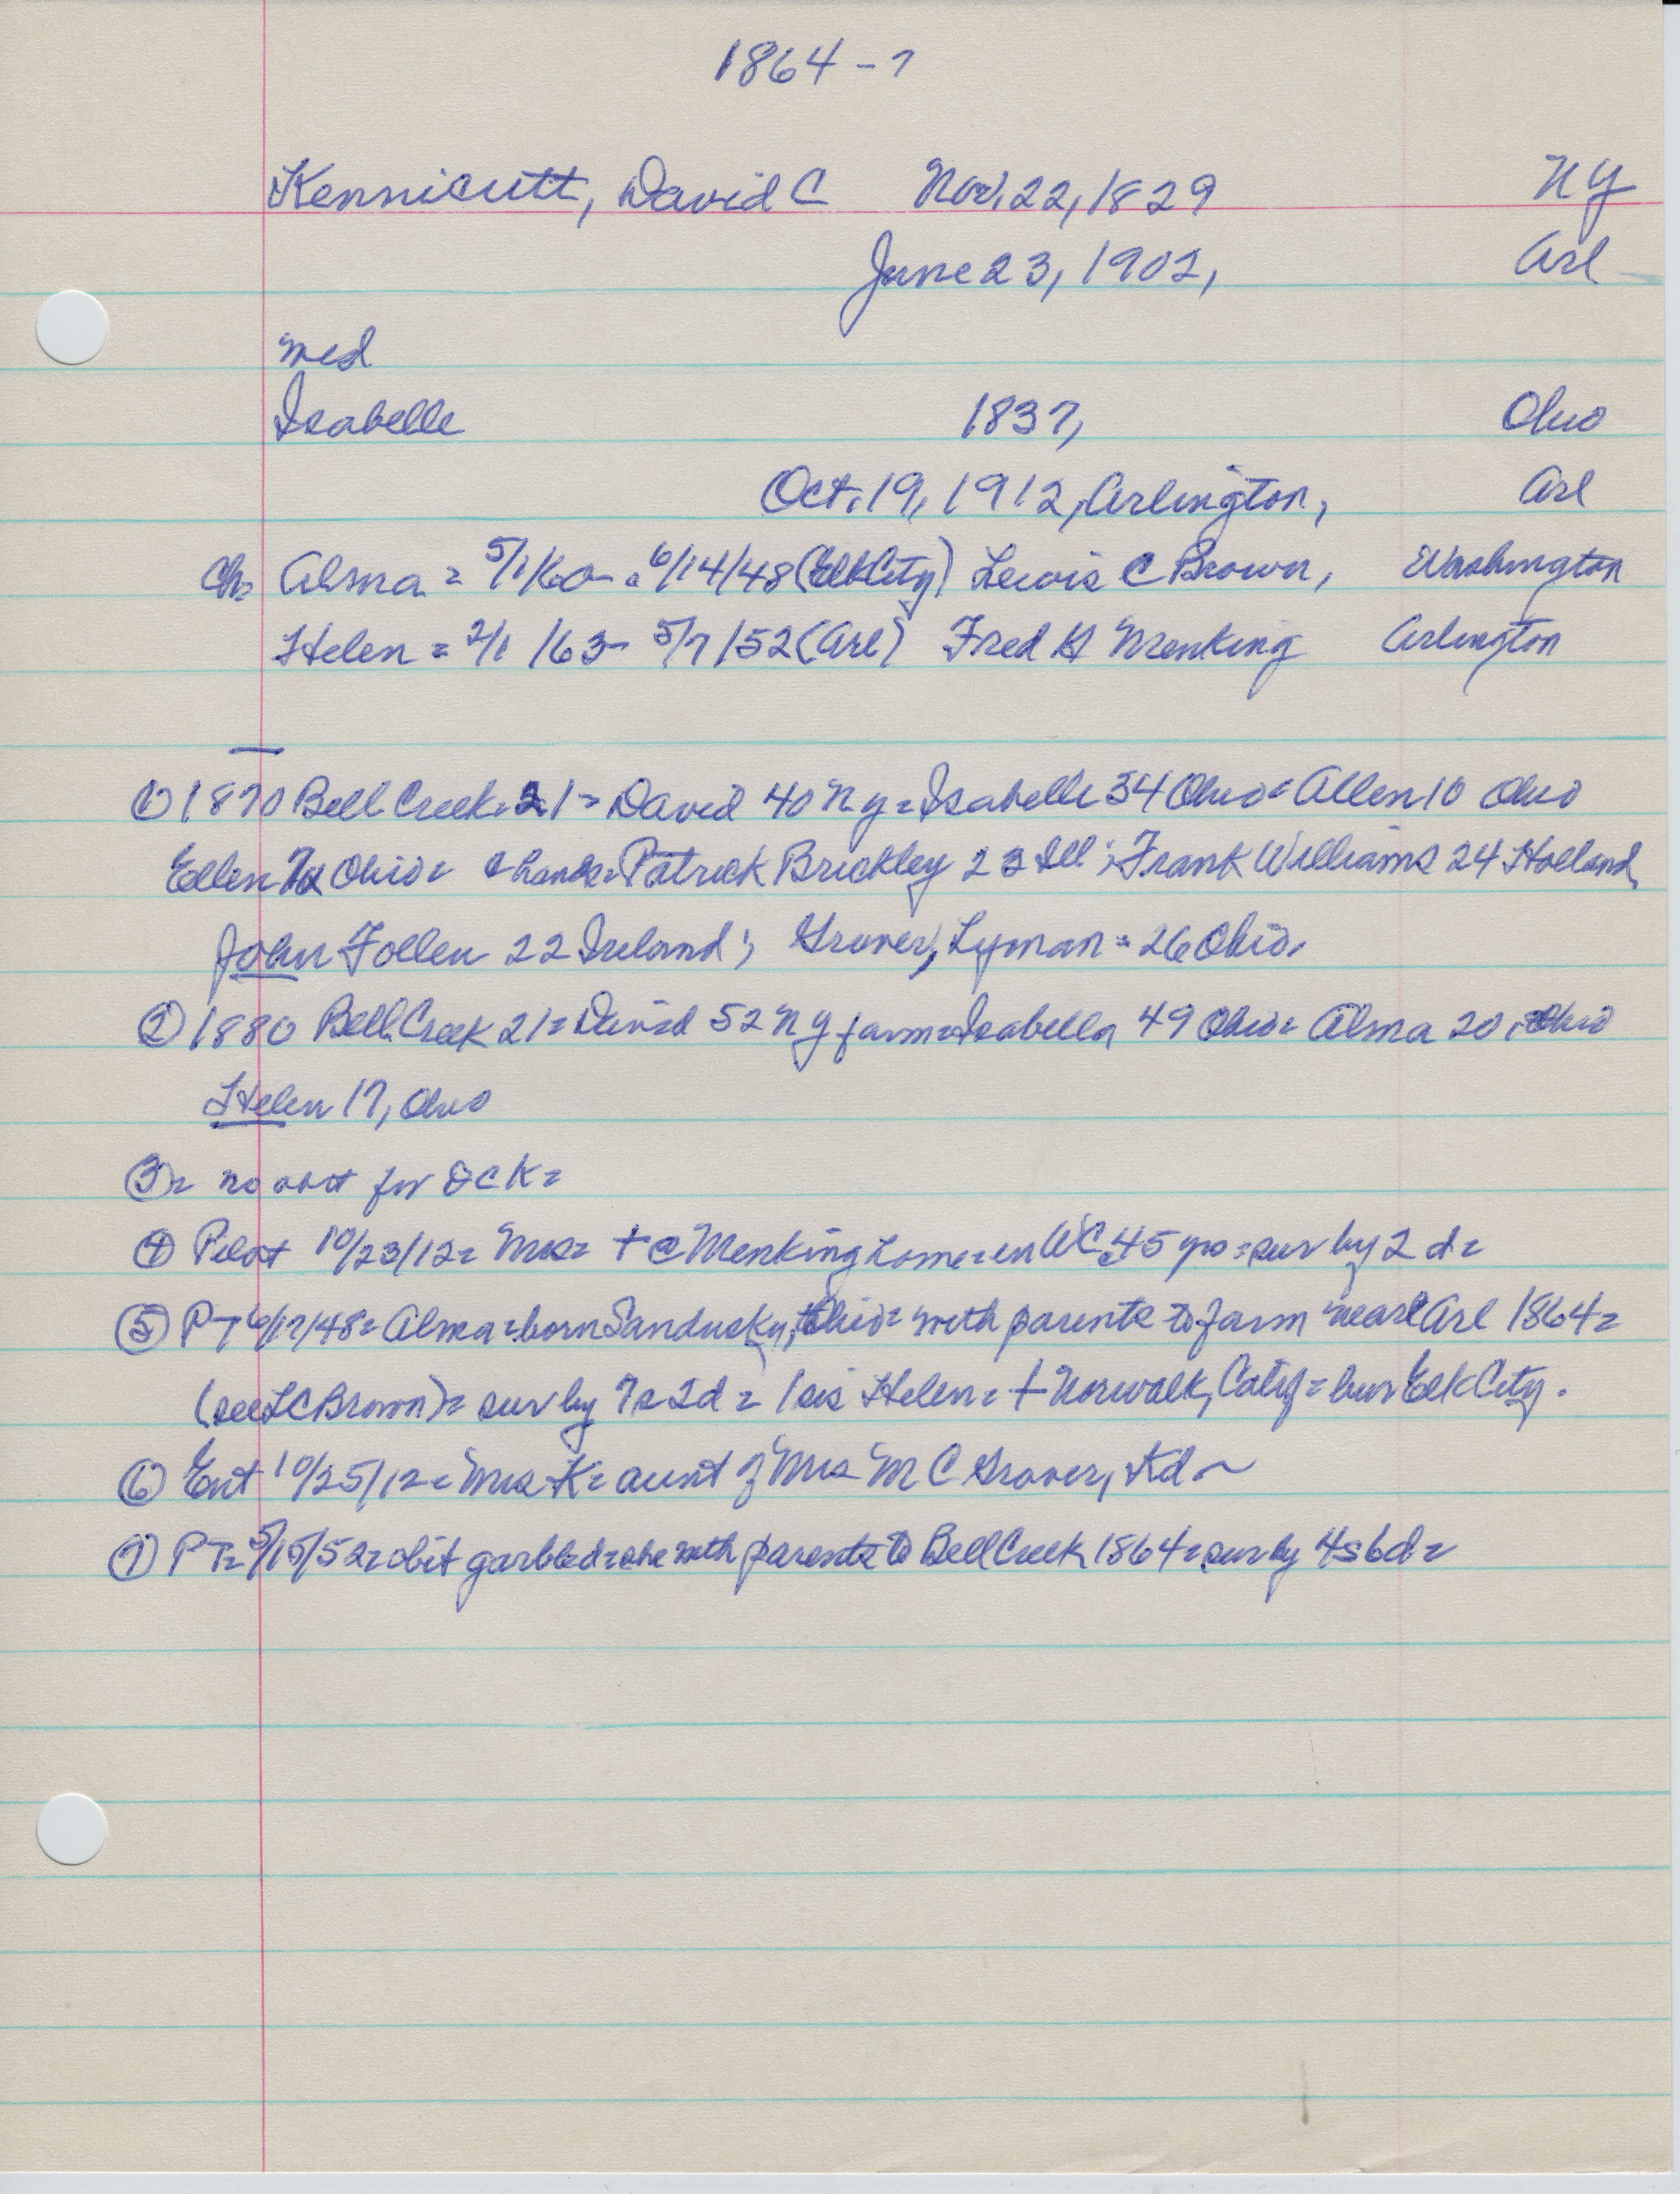 1864-7
Kennicutt, David C Nov. 22, 1829 NY
June 23, 1902, Arl
md
Isabelle 1837, Ohio
Oct. 19, 1912, Arlington, Arl
Ch Alma = 5/1/60 - 6/14/48 (Elk City) Lewis C Brown, Washington
Helen = 2/1/63 - 5/7/52 (Arl) Fred H Menking Arlington
① 1870 Bell Creek = 21 = David 40 NY = Isabelle 34 Ohio = Allen 10 Ohio
Ellen 7 Ohio = hands = Patrick Brickley 23 Ill; Frank Williams 24 Holland,
John Follen 22 Ireland; Grover, Lyman = 26 Ohio.
② 1880 Bell Creek 21 = David 52 NY farm = Isabella 49 Ohio = Alma 20, Ohio
Helen 17, Ohio
③ = no obit for DCK =
④ Pilot 10/23/12 = Mrs = † @ Menking home = in WC 45 yrs = sur by 2 d =
⑤ PT 6/17/48 = Alma = born Sandusky, Ohio = with parents to farm near Arl 1864 =
(see LC Brown) = sur by 7s 2d = 1 sis Helen = † Norwalk, Calif = bur Elk City.
⑥ Ent 10/25/12 = Mrs K = aunt of Mrs M C Grover, Kd
⑦ PT = 5/15/52 = obit garbled = she with parents to Bell Creek 1864 = sur by 4s 6d =